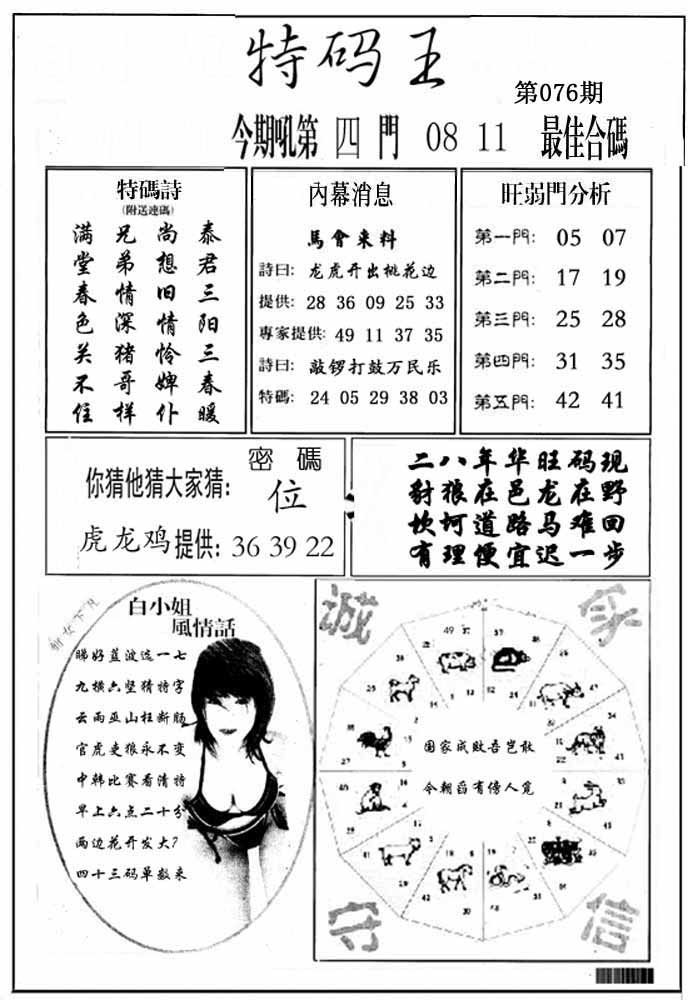 特码王
第076期
今期吼第 四 門 08 11 最佳合碼
特碼詩
(附送連碼)
泰君三阳三春暖
尚想旧情怜婢仆
兄弟情深猪哥样
满堂春色关不住
內幕消息
馬會来料
詩曰: 龙虎开出桃花边
提供: 28 36 09 25 33
專家提供: 49 11 37 35
詩曰: 敲锣打鼓万民乐
特碼: 24 05 29 38 03
旺弱門分析
第一門: 05 07
第二門: 17 19
第三門: 25 28
第四門: 31 35
第五門: 42 41
密碼
你猜他猜大家猜: 位
虎龙鸡提供: 36 39 22
二八年华旺码现
豺狼在邑龙在野
坎坷道路马难回
有理便宜迟一步
白小姐
風情話
睇好蓝波选一七
九横六竖猜特字
云雨巫山枉断肠
官虎吏狼永不变
中韩比赛看清特
早上六点二十分
两边花开发大?
四十三码单数来
诚 守 信
国家成败吾岂敢
今朝舀有傍人笕